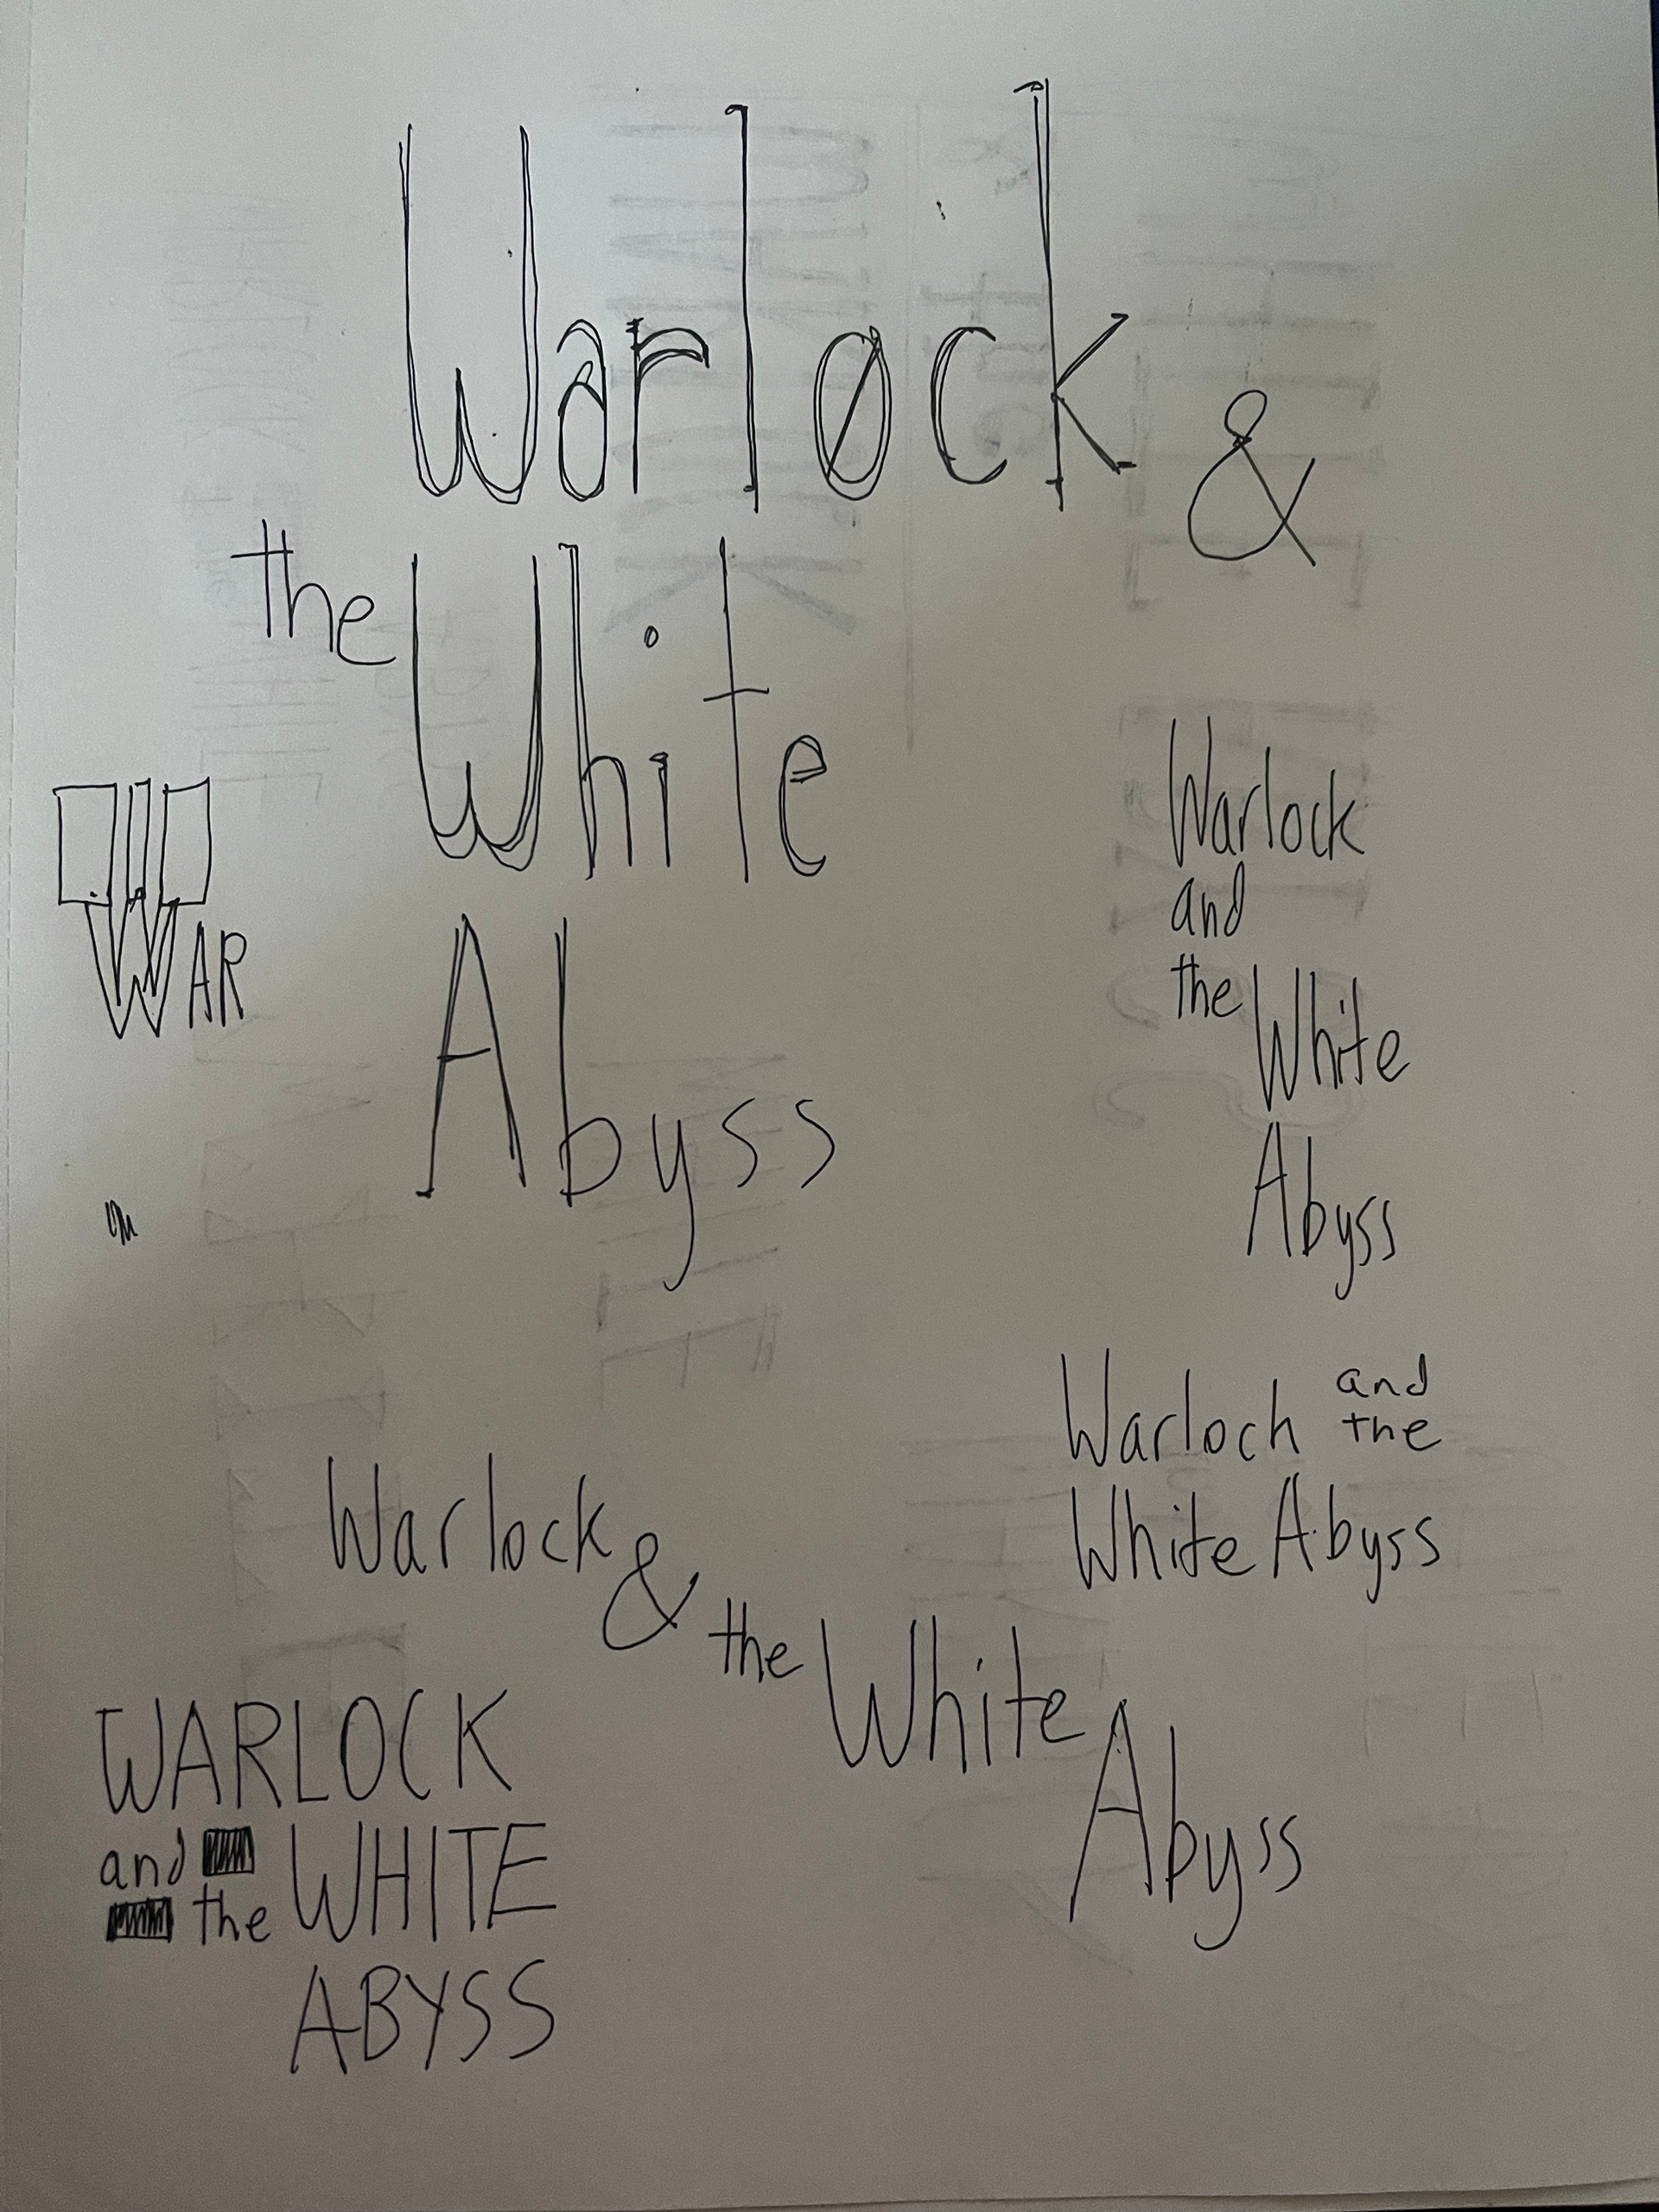 Warløck &
the White
Abyss
WAR
Warlock
and
the White
Abyss
Warloch and
the
White Abyss
Warlock &
the White
Abyss
WARLOCK
and
the WHITE
ABYSS